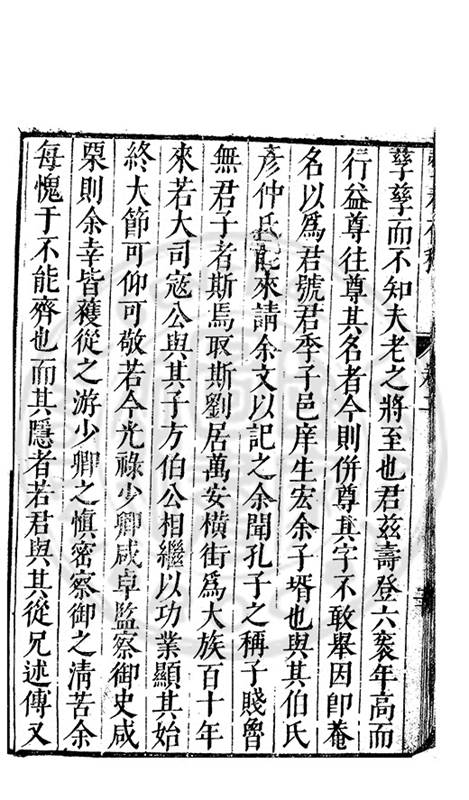 孳孳而不知夫老之將至也君茲壽登六袠年高而
行益尊往尊其名者今則併尊其字不敢舉因即菴
名以爲君號君季子邑庠生宏余子壻也與其伯氏
彥仲氏能來請余文以記之余聞孔子之稱子賤魯
無君子者斯馬取斯劉居萬安橫街爲大族百十年
來若大司寇公與其子方伯公相繼以功業顯其始
終大節可仰可敬若今光祿少卿咸卓監察御史咸
栗則余幸皆獲從之游少卿之愼密察御之清苦余
每愧于不能齊也而其隱者若君與其從兄述傳又